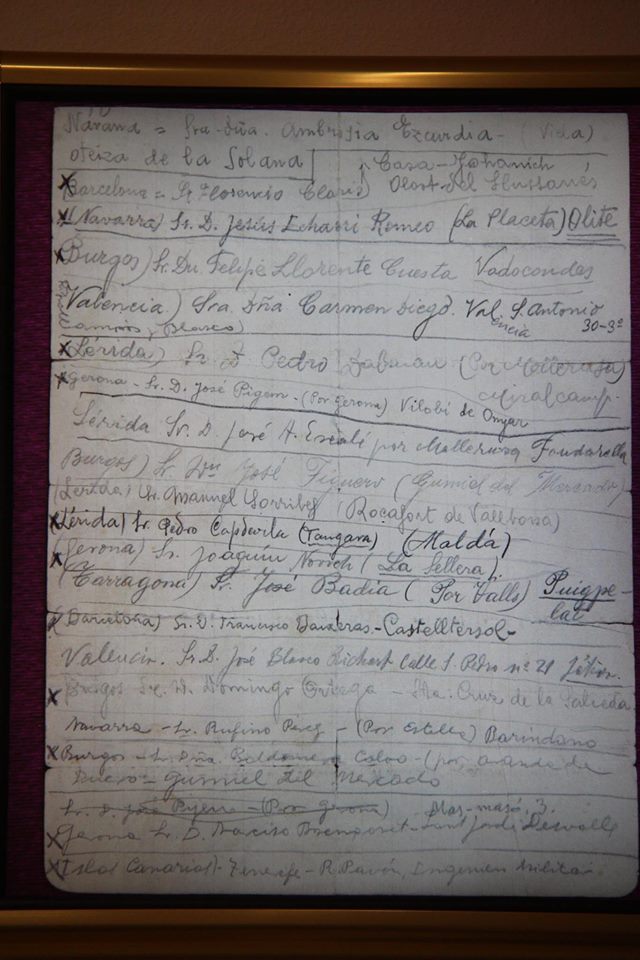 Návarra = Sra. Dña. Ambrosia Ezcurdia - (Vida)
oteiza de la Solana Casa -
X (Barcelona = Sr Florencio Olost-del Llussanés
X (Navarra) Sr. D. Jesús Echarri Romeo (La Placeta) Olite
X Burgos) Sr. Dn. Felipe Llorente Cuesta Vadocondes
Valencia) Sra Dñá Carmen Diego. Valencia S. Antonio
Campos, (Blasco) 30-3º
X (Lérida) Sr D Pedro (Por Mollerusa)
Miralcamp.
X Gerona - Sr. D. José Pigem - (Por Gerona) Vilobí de Onyar
Lérida Sr. D. José A. Escolá por Mollerusa Fondarella
Burgos) Sr Dn. José Figuero (Gumiel del Mercado)
(Lérida) Sr. Manuel Sorribes (Rocafort de Vallbona)
X (Lérida) Sr Pedro Capdevila (Maldá)
X (Gerona) Sr. Joaquín (La Sellera)
(Tarragona) Sr. José Badía (Por Valls) Puigpe-
lat
X (Barcelona) Sr. D. Francisco - Castelltersol -
Valencia. Sr. D. José Blasco Richart Calle S. Pedro nº 21
X Burgos Sr. D. Domingo Ortega - Sta. Cruz de la Salceda
Navarra - Sr. Rufino Perez - (Por Estella) Barindano
X Burgos - Sr. Dña. Baldomera Calvo - (por aranda de
Duero - Gumiel del Mercado
Sr. D. José - (Por Gerona) Mas-masó, 3.
X Gerona Sr. D. Narciso - Sant Jordi Desvalls
X Islas Canarias) - Tenerife - R. Pavón, Ingenieros Militar